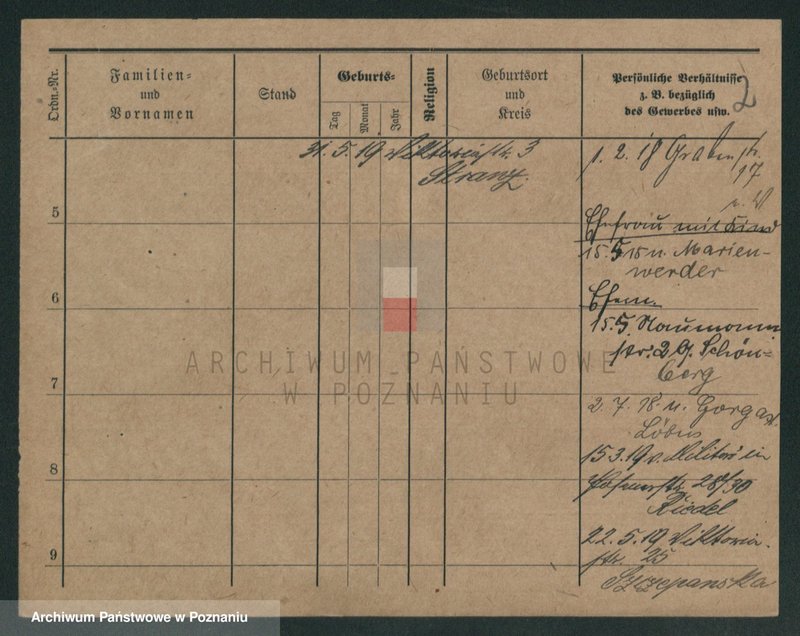 Ordn.-Nr.
Familien-
und
Vornamen
Stand
Geburts-
Tag
Monat
Jahr
Religion
Geburtsort
und
Kreis
Persönliche Verhältnisse
z. B. bezüglich
des Gewerbes usw.
2
31. 5. 19 Viktoriastr. 3
Stranz
1. 2. 18 Grabenstr.
17
Ehefrau mit Kind
15. 5 15 n. Marien-
werder
Ehem.
15. 5. Naumann
str. 26 Schön-
berg
2. 7. 18. n.
15 3. 19 v. Militär in
str. 28/30
Riedel
22. 5. 19 Viktoria-
str. 25
Szczepanska
5
6
7
8
9
ARCHIWUM PAŃSTWOWE
W POZNANIU
Archiwum Państwowe w Poznaniu